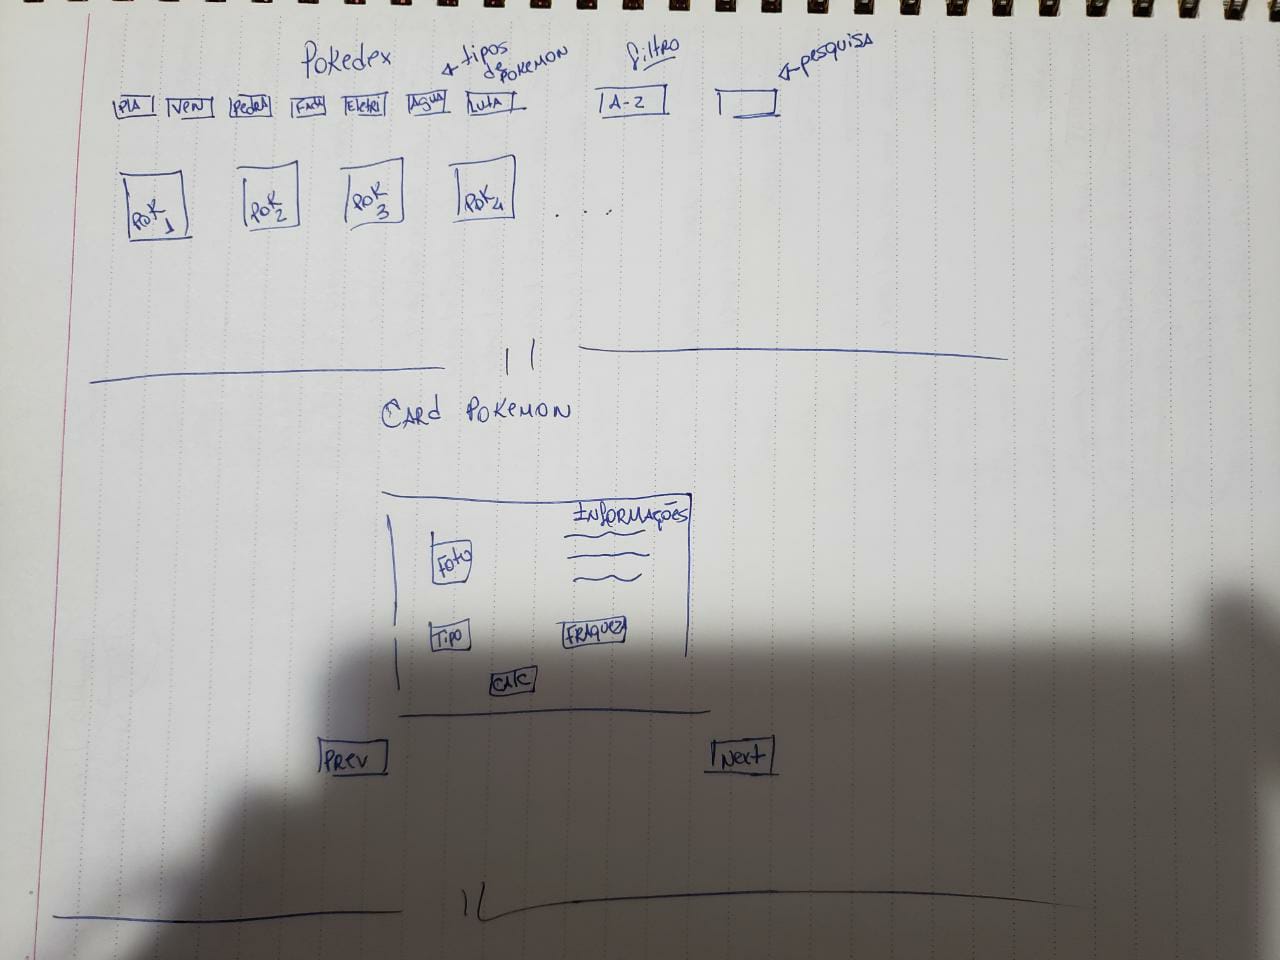 Pokedex
tipos
de POKEMON
filtro
pesquisa
PLA
VEN
Pedra
Fada
Eletri
Agua
LUTA
A-Z
POK 1
POK 2
POK 3
POK 4
. . .
CARd POKEMON
INFORMAÇÕES
Foto
Tipo
FRAQUEZA
Prev
Next